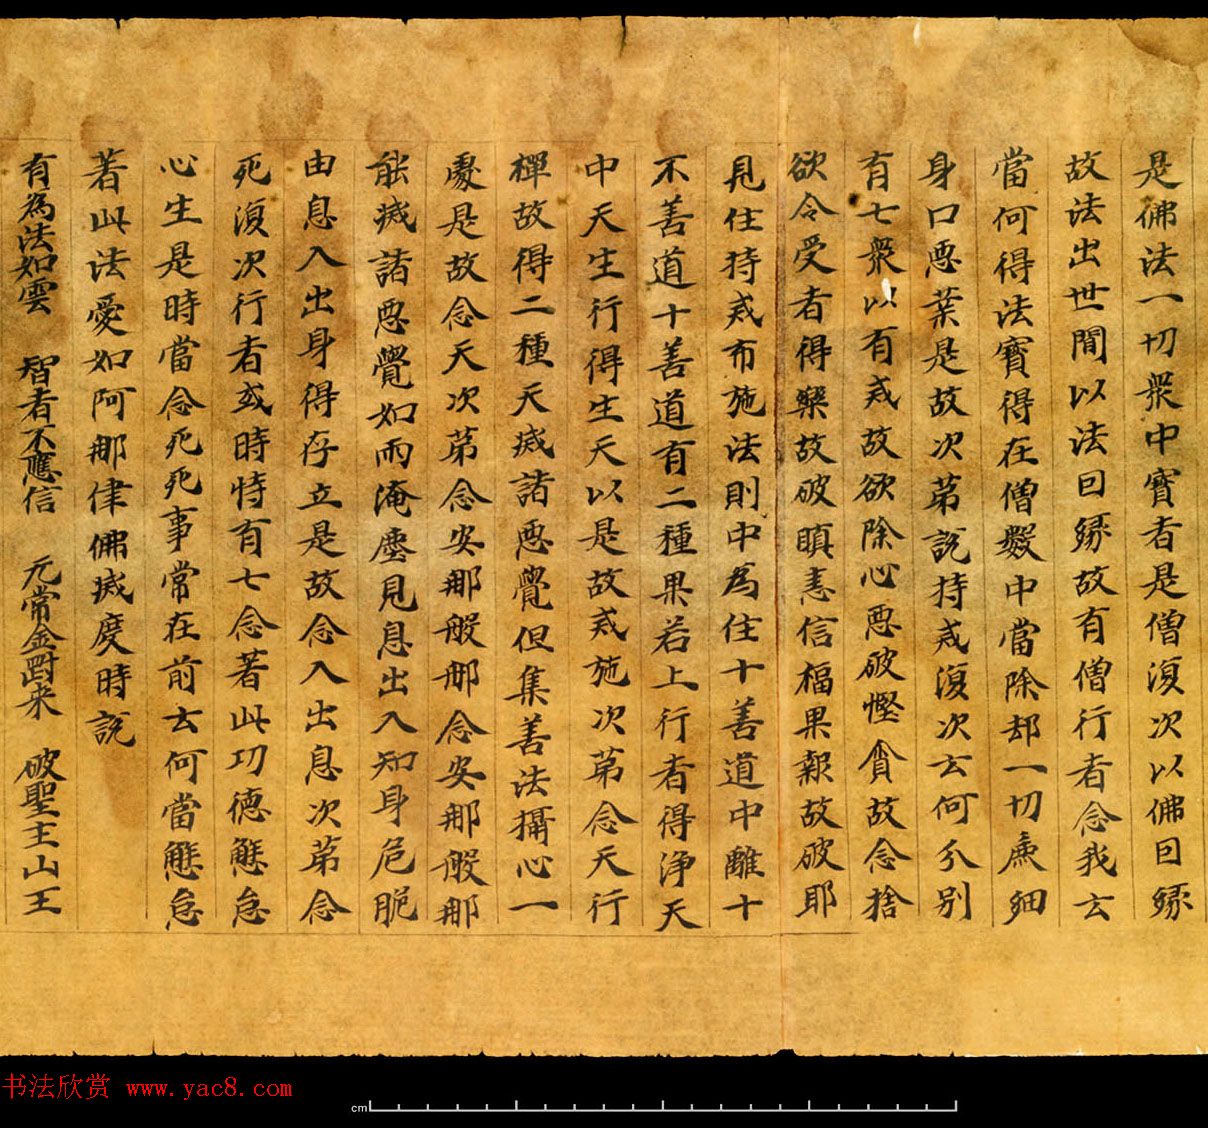 是佛法一切衆中寶者是僧復次以佛因緣
故法出世間以法因緣故有僧行者念我云
當何得法寶得在僧數中當除却一切麁細
身口惡業是故次第說持戒復次云何分別
有七衆以有戒故欲除心惡破慳貪故念捨
欲令受者得樂故破瞋恚信福果報故破耶
見住持戒布施法則中為住十善道中離十
不善道十善道有二種果若上行者得淨天
中天生行得生天以是故戒施次第念天行
禪故得二種天滅諸惡覺但集善法攝心一
處是故念天次第念安那般那念安那般那
能滅諸惡覺如雨淹塵見息出入知身危脆
由息入出身得存立是故念入出息次第念
死復次行者或時恃有七念著此功德懈怠
心生是時當念死死事常在前云何當懈怠
著此法愛如阿那律佛滅度時說
有為法如雲 智者不應信 无常金剛来 破聖主山王
书法欣赏 www.yac8.com
cm